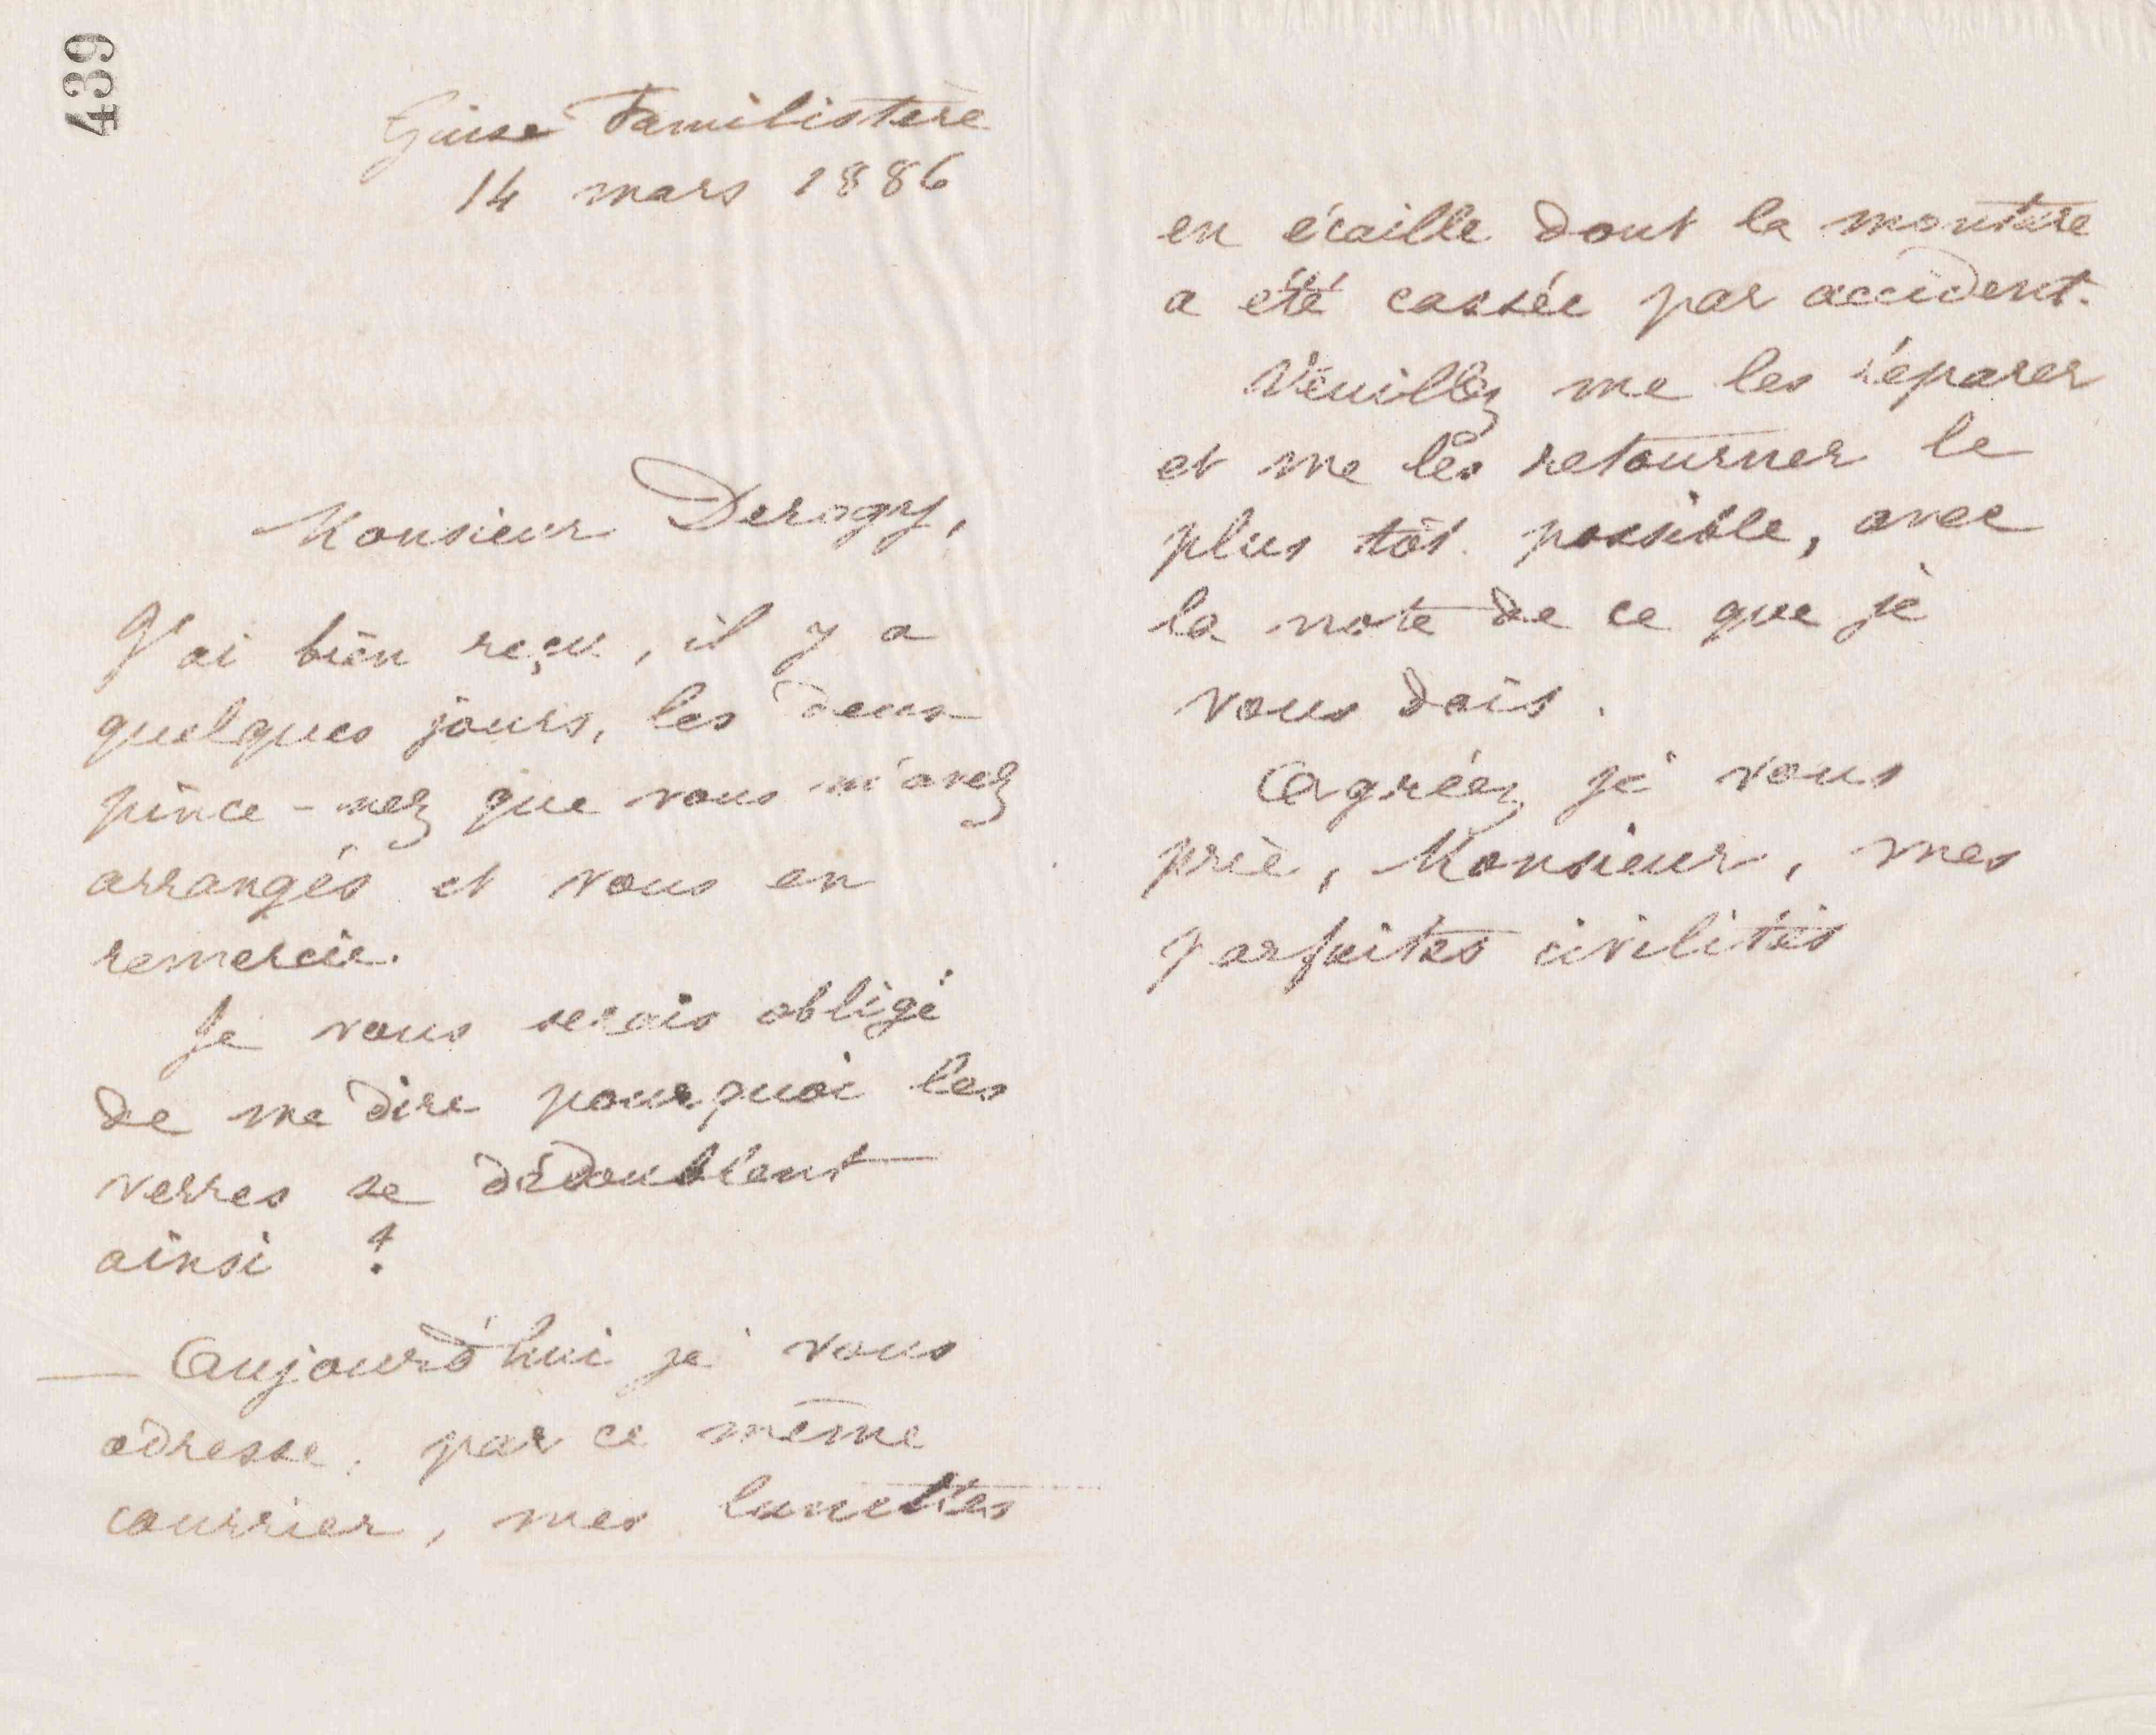 439
Guise Familistère
14 mars 1886
Monsieur Derogy,
J'ai bien reçu, il y a
quelques jours, les deux
pince-nez que vous m'avez
arrangés et vous en
remercie.
Je vous serais obligé
de me dire pourquoi les
verres se dédoublent
ainsi ?
— Aujourd'hui je vous
adresse, par ce même
courrier, mes lunettes
en écaille dont la monture
a été cassée par accident.
Veuillez me les réparer
et me les retourner le
plus tôt possible, avec
la note de ce que je
vous dois.
Agréez je vous
prie, Monsieur, mes
parfaites civilités